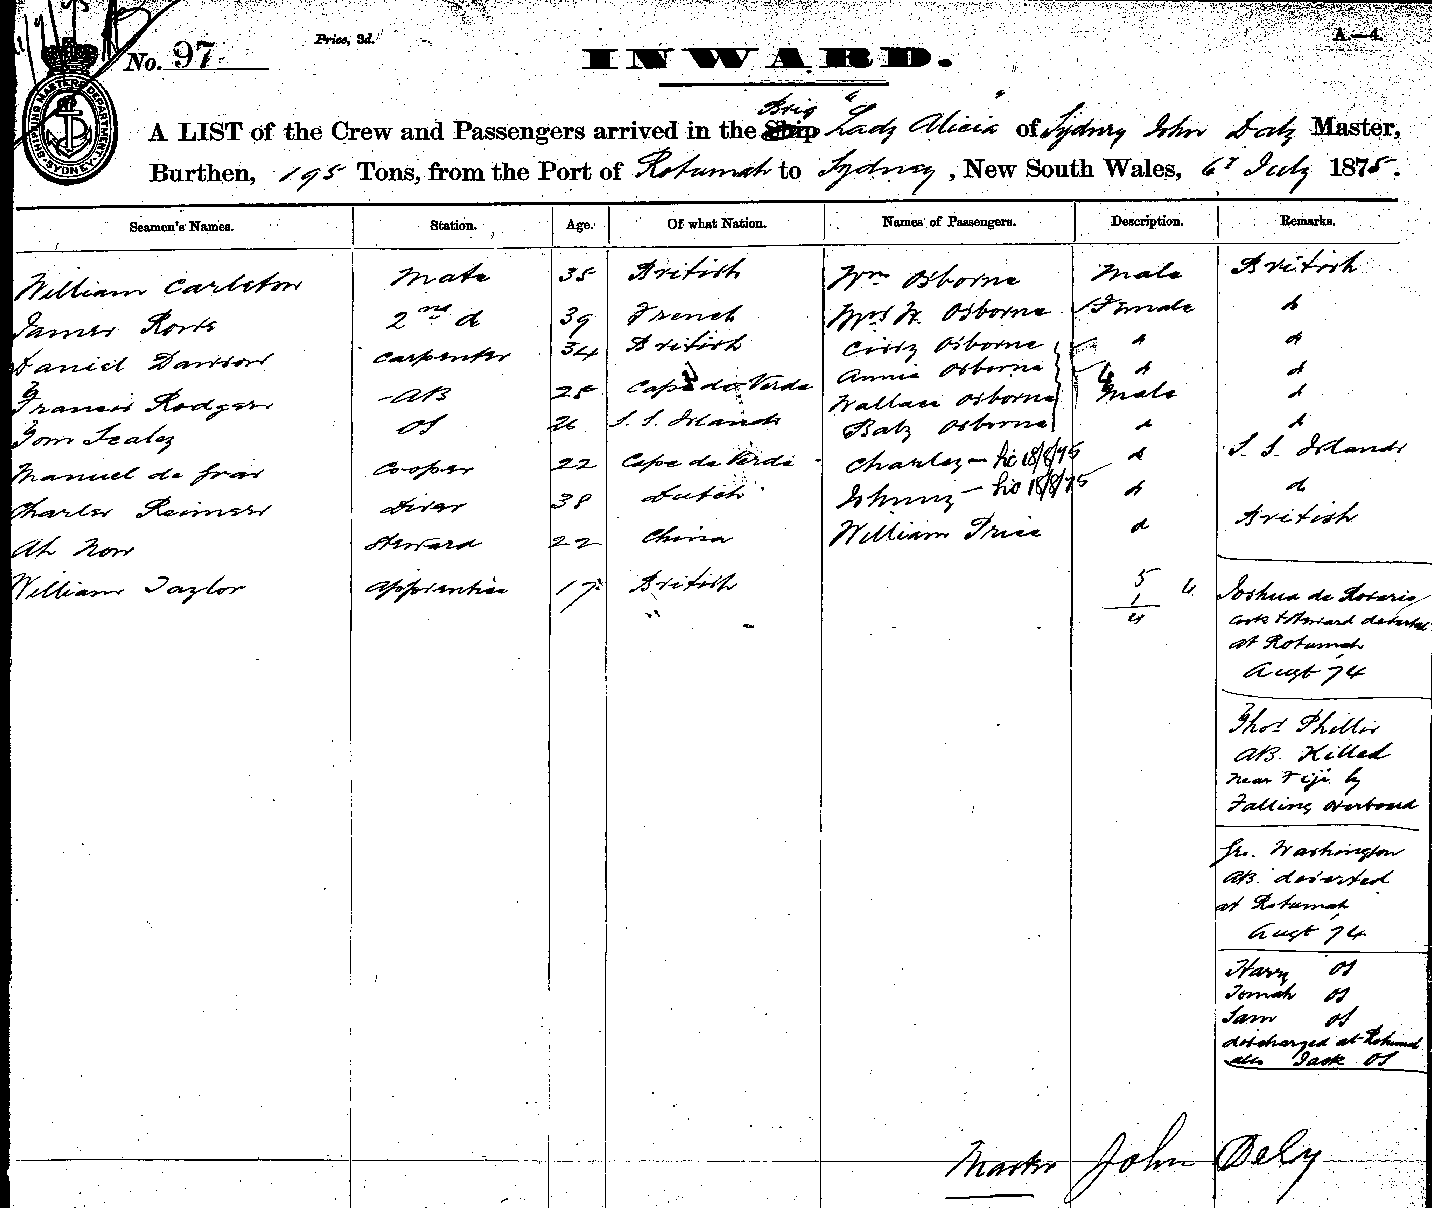 No. 97
Price, 3d.
INWARD.
A.—4.
SHIPPING MASTER'S DEPARTMENT SYDNEY
Brig
A LIST of the Crew and Passengers arrived in the Ship "Lady Alicia" of Sydney John Daly Master,
Burthen, 195 Tons, from the Port of Rotumah to Sydney, New South Wales, 6th July 1875.
Seamen's Names. Station. Age. Of what Nation. Names of Passengers. Description. Remarks.
William Carleton Mate 35 British Wm Osborne Male British
James Rows 2nd d 39 French Mrs W. Osborne Female d
Daniel Dawson Carpenter 34 British Cissy Osborne d d
Annie Osborne d d
Francis Rodgers AB 25 Cape de Verde Wallace Osborne Male d
Tom Sealey OS 26 S. S. Islands Baby Osborne d d
Manuel de Gras Cooper 22 Cape de Verde Charley — lic 18/8/75 d S. S. Islands
Charles Reimers Diver 38 Dutch Johnny — lic 18/8/75 d d
Ah Now Steward 22 China William Price d British
William Taylor Apprentice 17 British
5
1
4
Joshua de Rosario
Cook & Steward deserted
at Rotumah
Augt '74
Thos Phillis
AB. Killed
near Fiji by
Falling overboard
Geo. Washington
AB. deserted
at Rotumah
Augt '74
Harry OS
Tomah OS
Sam OS
discharged at Rotumah
also Jack OS
Master John Daly